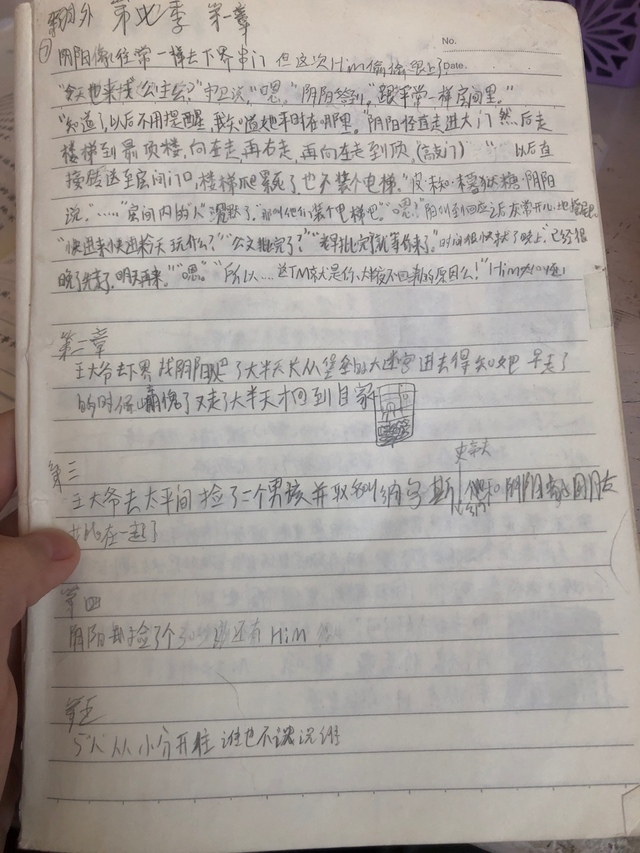 番外 第七季 第一章
No.
Date.
① 阴阳像往常一样去下界串门 但这次Him偷偷跟上了
"今天也来找公主么?"守卫说,"嗯。"阴阳答到,"跟平常一样房间里。"
"知道了,以后不用提醒,我知道她平时在哪里。"阴阳径直走进大门 然后走
楼梯到最顶楼,向左走,再右走,再向左走到顶,(敲门) 以后直
接传送至房间门口,楼梯爬累死了也不装个电梯。" 阴阳
说。"……"房间内的"人"沉默了。"那叫他们装个电梯吧。""嗯!"阴阳听到回应之后非常开心
"快进来快进来今天玩什么?""公文批完了?""早批完就等你来了。"时间很快就到了晚上,"已经很
晚了先走了,明天再来。""嗯。""所以……这TM就是你大半夜不回家的原因么!"Him
第二章
王大爷去下界找阴阳爬了大半天才从堡垒的大迷宫进去得知她早走了
的时候崩溃了又走了大半天才回到自家
第三
王大爷去太平间捡了一个男孩并取名叫纳字斯 他和阴阳
在一起了
第四
阴阳 捡了个 还有Him
第五
5人从小分开住 谁也不认识谁